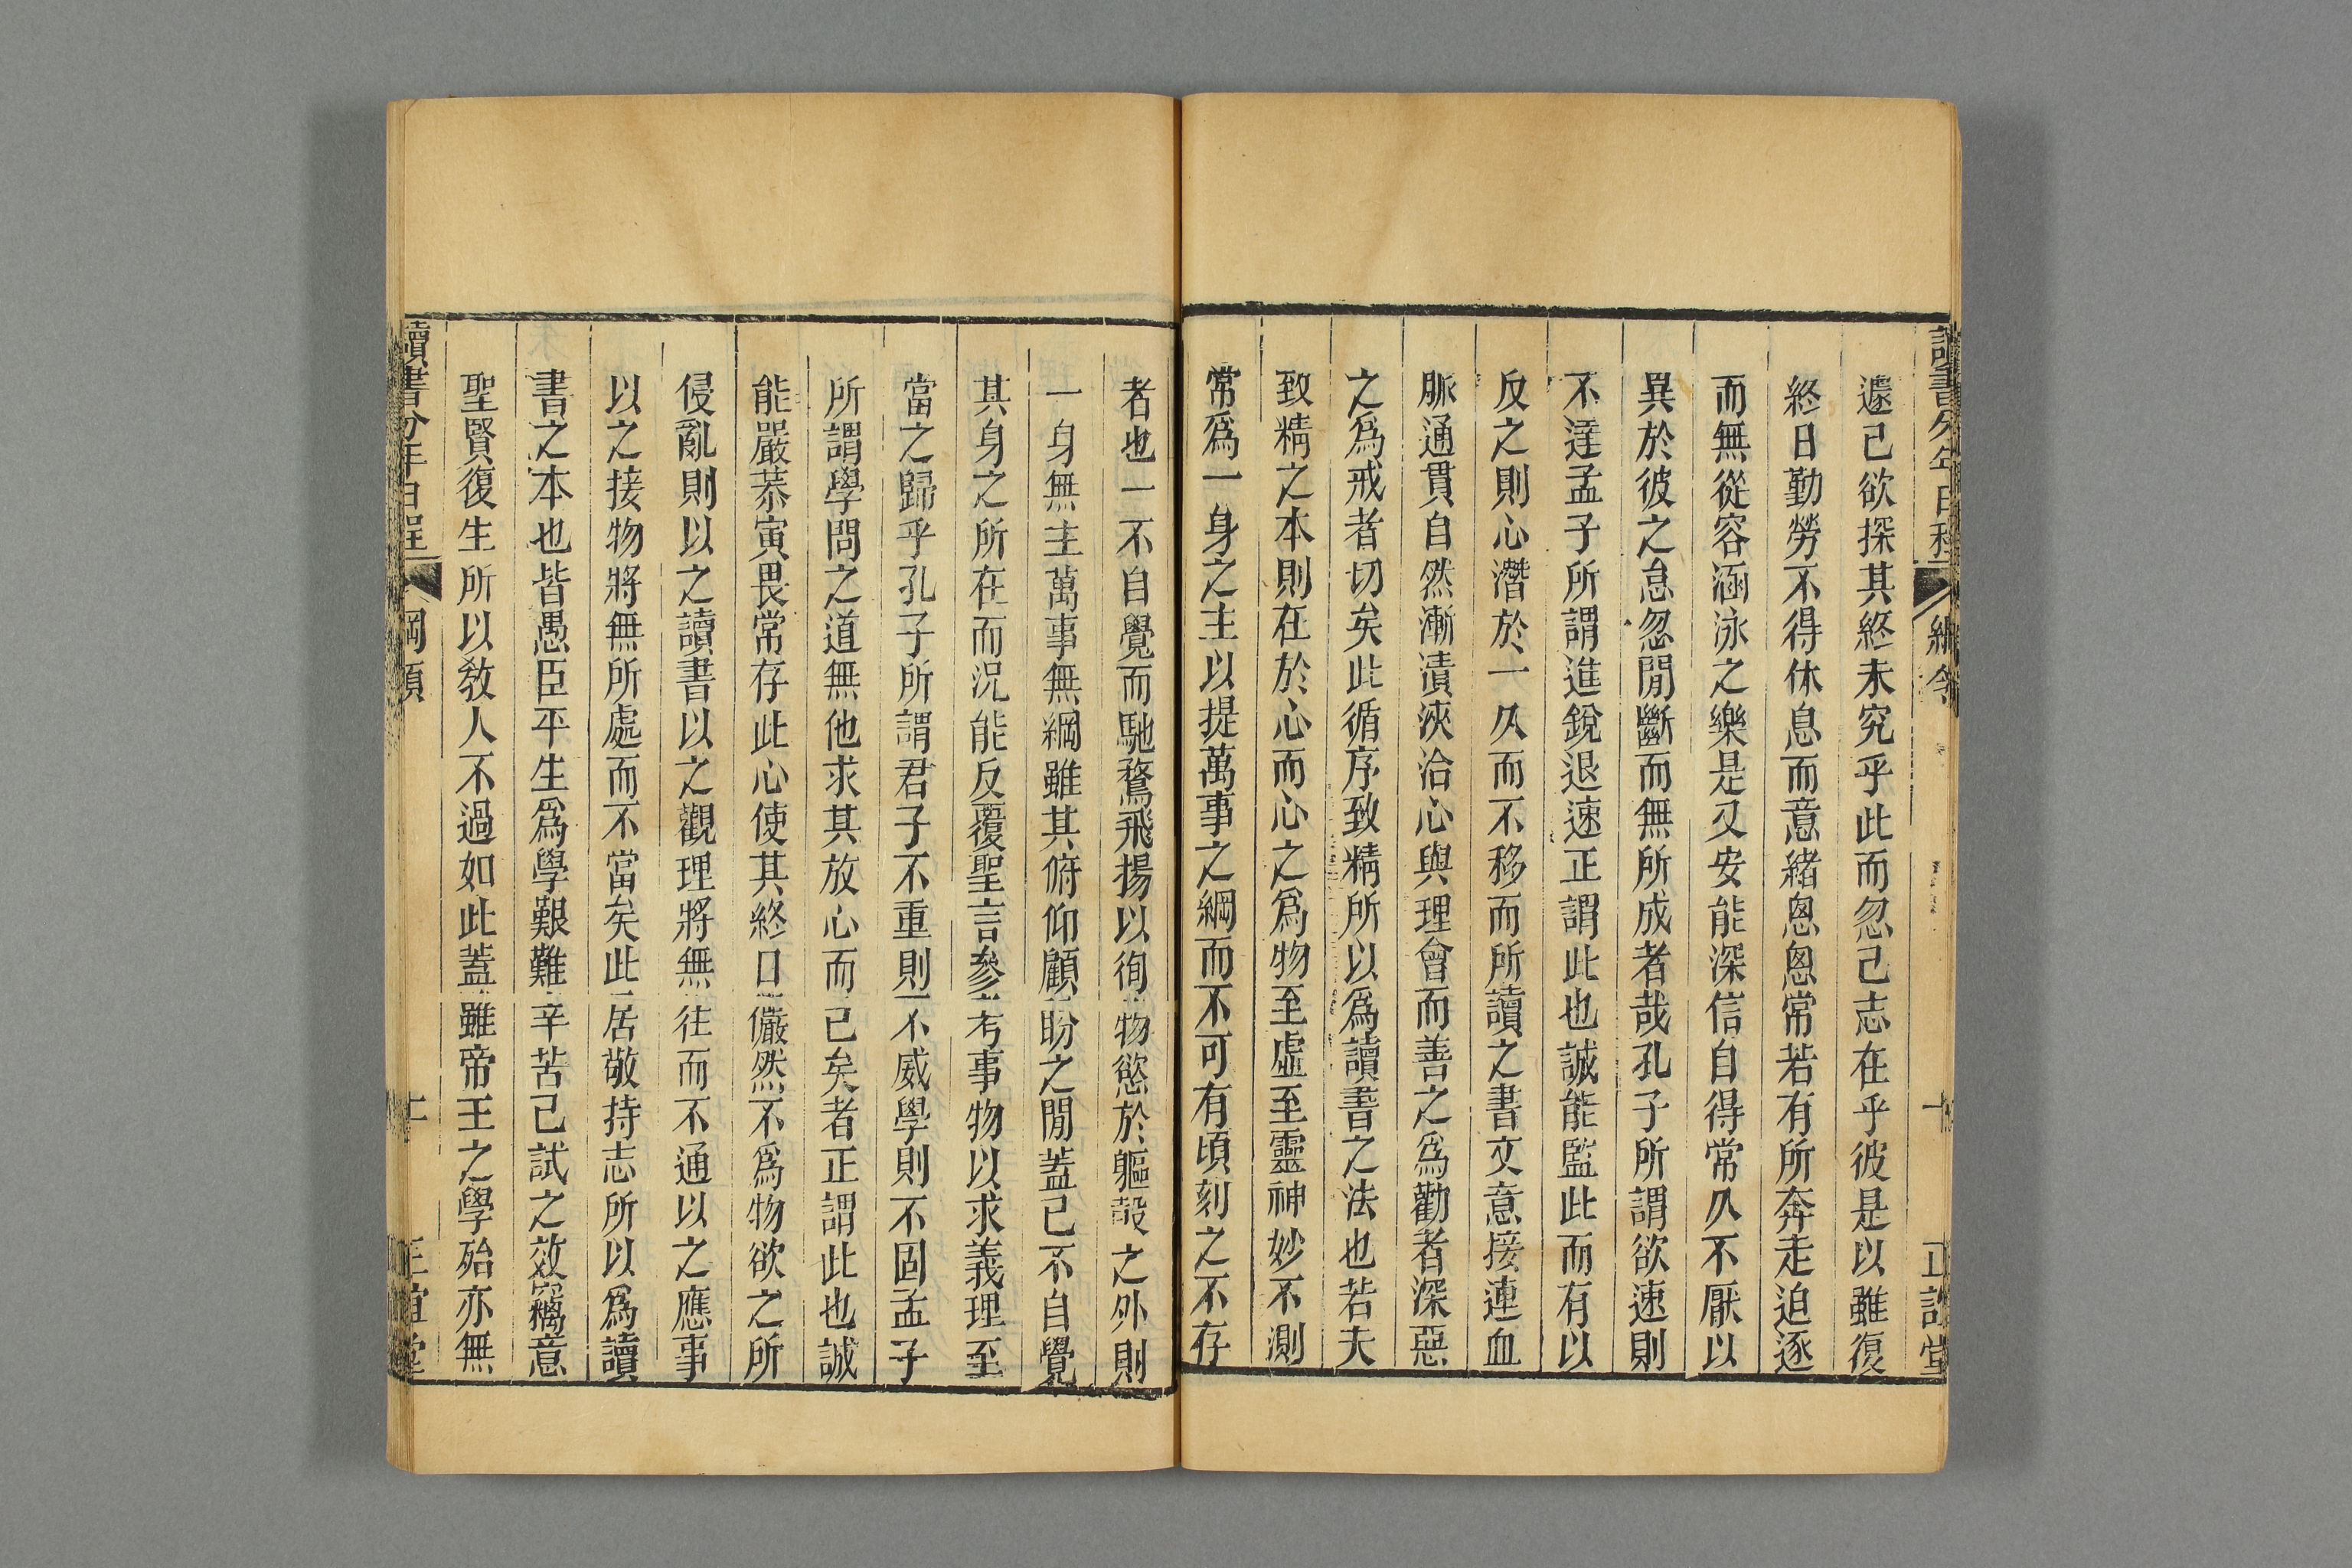 遽已欲探其終未究乎此而忽已志在乎彼是以雖復
終日勤勞不得休息而意緒悤悤常若有所奔走迫逐
而無從容涵泳之樂是又安能深信自得常久不厭以
異於彼之怠忽閒斷而無所成者哉孔子所謂欲速則
不達孟子所謂進銳退速正謂此也誠能監此而有以
反之則心潛於一久而不移而所讀之書文意接連血
脈通貫自然漸漬浹洽心與理會而善之爲勸者深惡
之爲戒者切矣此循序致精所以爲讀書之法也若夫
致精之本則在於心而心之爲物至虛至靈神妙不測
常爲一身之主以提萬事之綱而不可有頃刻之不存
者也一不自覺而馳騖飛揚以徇物慾於軀殼之外則
一身無主萬事無綱雖其俯仰顧盼之閒蓋已不自覺
其身之所在而況能反覆聖言參考事物以求義理至
當之歸乎孔子所謂君子不重則不威學則不固孟子
所謂學問之道無他求其放心而已矣者正謂此也誠
能嚴恭寅畏常存此心使其終日儼然不爲物欲之所
侵亂則以之讀書以之觀理將無往而不通以之應事
以之接物將無所處而不當矣此居敬持志所以爲讀
書之本也皆愚臣平生爲學艱難辛苦已試之效竊意
聖賢復生所以敎人不過如此蓋雖帝王之學殆亦無
讀書分年日程 綱領 十 正誼堂